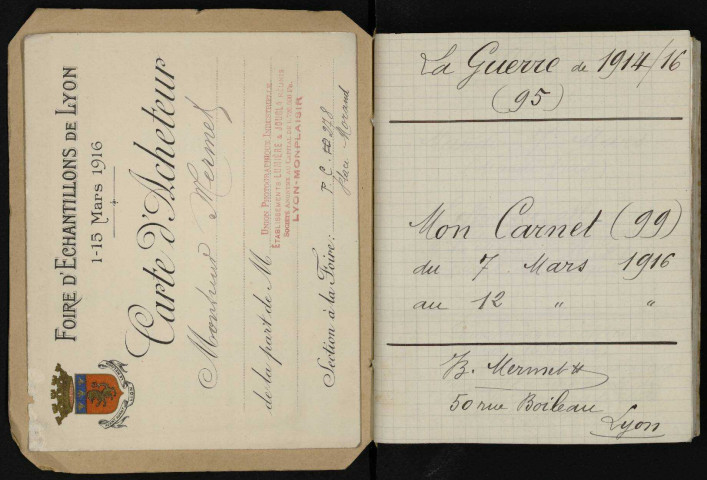 FOIRE D'ÉCHANTILLONS DE LYON
1-15 MARS 1916
Carte d'Acheteur
Monsieur Mermet
de la part de M
UNION PHOTOGRAPHIQUE INDUSTRIELLE
ÉTABLISSEMENTS LUMIÈRE & JOUGLA RÉUNIS
LYON-MONPLAISIR
Section à la Foire: P.C. 278
Place Morand
La Guerre de 1914/16
(95)
Mon Carnet (99)
du 7 Mars 1916
au 12 " "
B. Mermet
50 rue Boileau
Lyon